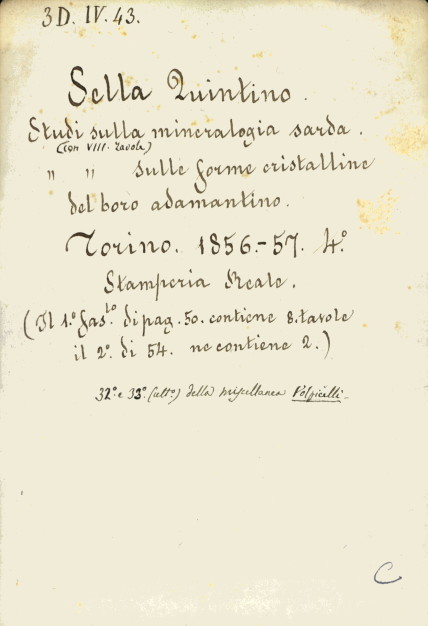 3D. IV. 43.
Sella Quintino.
Studi sulla mineralogia sarda.
(con VIII. tavole)
" " sulle forme cristalline
del boro adamantino.
Torino. 1856.-57. 4.°
Stamperia Reale.
(Il 1.° fas.lo di pag. 50. contiene 8. tavole
il 2.° di 54. ne contiene 2.)
32.° e 33.° (ult.°) della miscellanea Volpicelli.
C